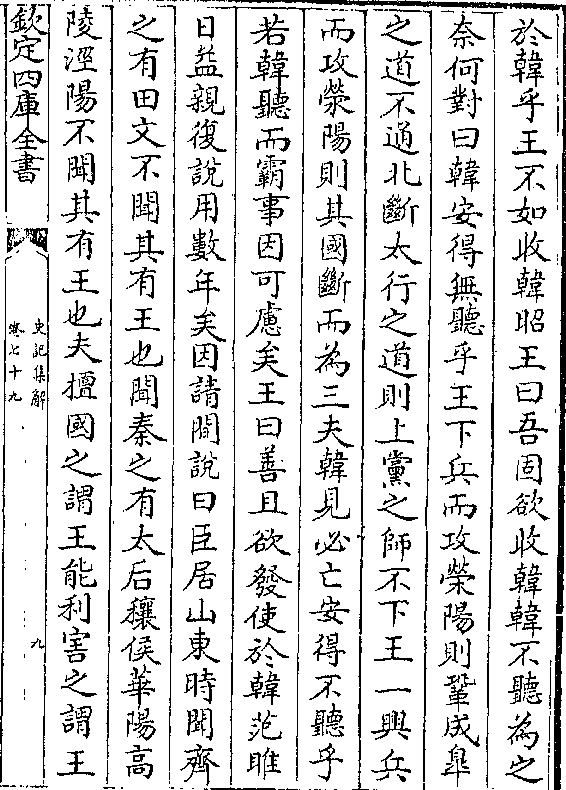 於韓乎王不如收韓昭王曰吾固欲收韓韓不聽為之
奈何對曰韓安得無聽乎王下兵而攻榮陽則鞏成臯
之道不通北斷太行之道則上黨之師不下王一興兵
而攻滎陽則其國斷而為三夫韓見必亡安得不聽乎
若韓聽而霸事因可慮矣王曰善且欲發使於韓范雎
日益親復說用數年矣因請間說曰臣居山東時聞齊
之有田文不聞其有王也聞秦之有太后穰侯華陽高
陵涇陽不聞其有王也夫擅國之謂王能利害之謂王
欽定四庫全書
史記集解
卷七十九
九